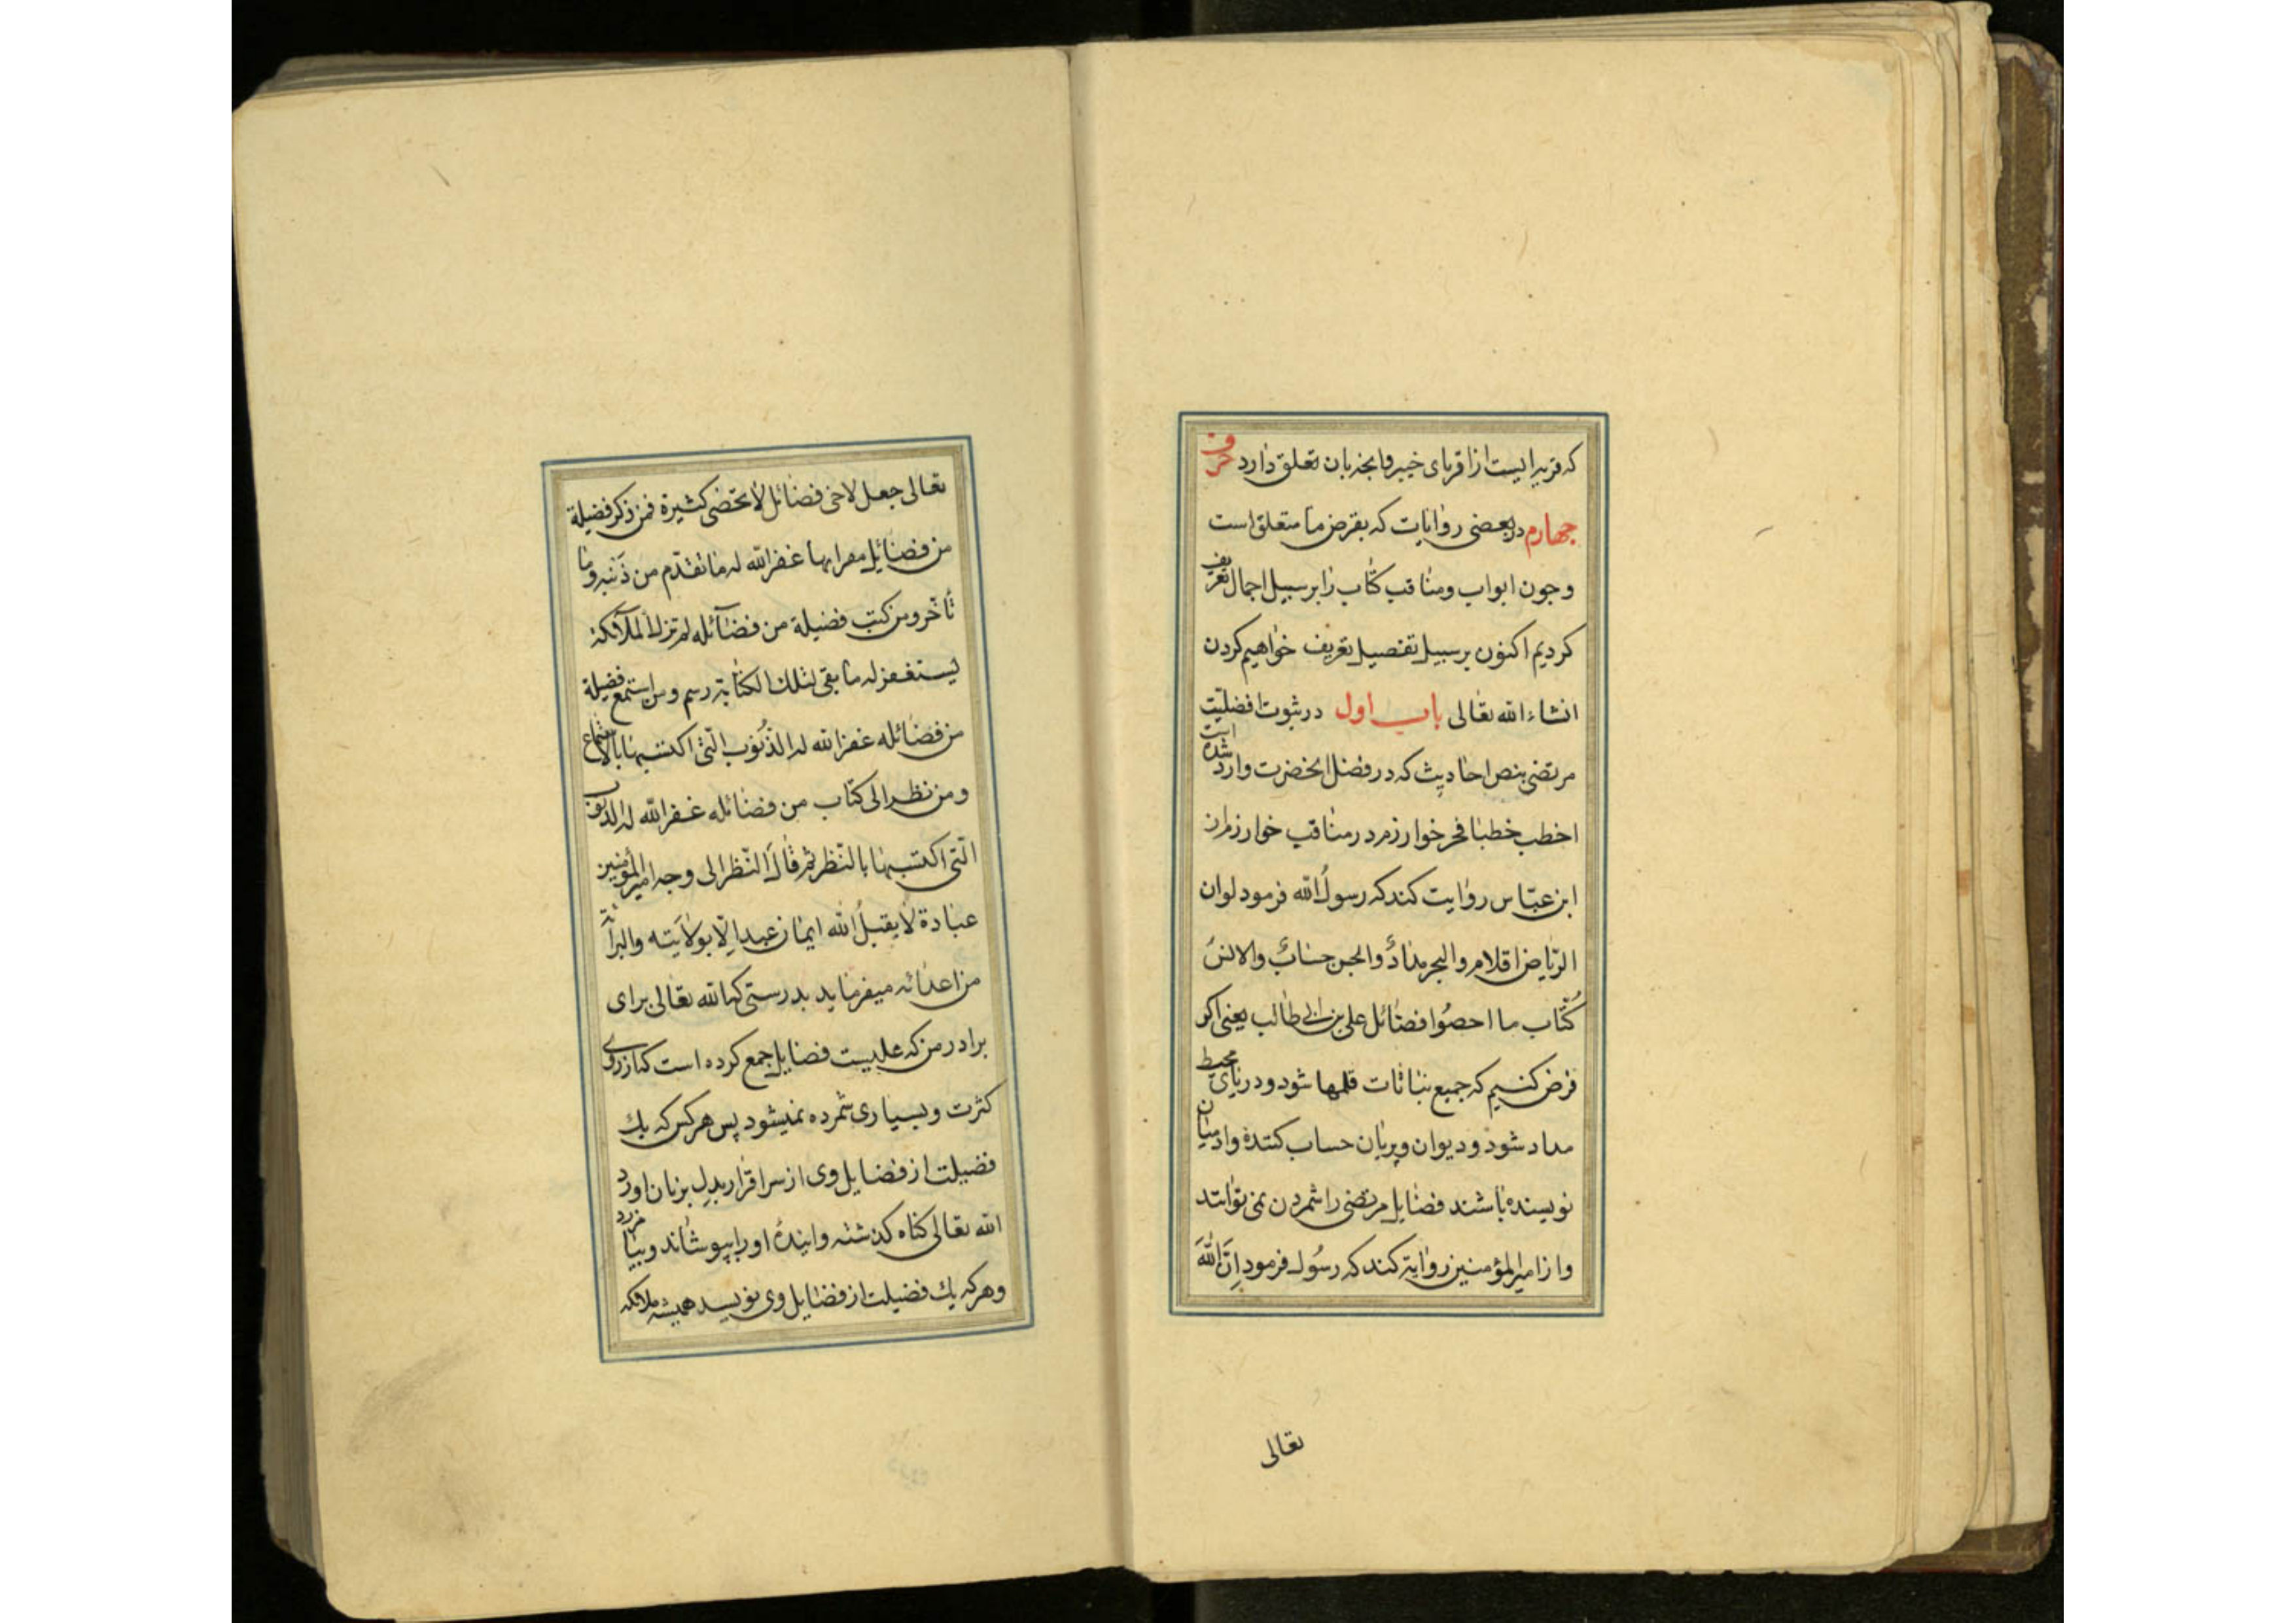 که قریه ایست از اقربای خیبر وانچه بان تعلق دارد حرف
چهارم در بعضی روایات که بغرض ما متعلق است
و چون ابواب و مناقب کتاب را بر سبیل اجمال تعریف
کردیم اکنون بر سبیل تفصیل تعریف خواهیم کردن
انشاء الله تعالی باب اول در ثبوت افضلیّت
مرتضی بنص احادیث که در فضل انحضرت وارد شده است
اخطب خطبا فخر خوارزم در مناقب خوارزم از
ابن عبّاس روایت کند که رسول الله فرمود لوان
الرّیاض اقلام والبحر مدادٌ والجن حسابٌ والانسُ
کُتّاب ما احصُوا فضائل علی بن ابی طالب یعنی اکر
فرض کنیم که جمیع نباتات قلمها شود و دریای محیط
مداد شود و دیوان و پریان حساب کننده وادمیان
نویسنده باشند فضایل مرتضی را شمردن نمی توانند
و از امیرالمؤمنین روایة کند که رسُول فرمود اِنَّ اللهَ
تعالی
تعالی جعل لاخی فضائل لا تحصی کثیرة فمن ذکر فضیلة
من فضایل مقرا بها غفرالله له ما تقدّم من ذَنبه وما
تأخّر ومن کتب فضیلة من فضآئله لم تزل الملآئکة
یستغفر له ما بقی لتلك الکتابة رسم ومن استمع فضیلة
من فضائله غفر الله له الذّنُوب الّتی اکتسبها بالاستماع
ومن نظر الی کتاب من فضائله غفرالله له الذنوب
الّتی اکتسبها بالنّظر ثم قالَ النّظر الی وجه امیرالمؤمنین
عبادة لا یقبلُ الله ایمان عبد الّا بولایَته والبرآئة
من اعدائه میفرماید بدرستی که الله تعالی برای
برادر من که علیست فضایل جمع کرده است که از روی
کثرت و بسیاری شمرده نمیشود پس هر کس که یك
فضیلت از فضایل وی از سر اقرار بدل بزبان اورد
الله تعالی کناه کذشته و ایندهٔ او را بپوشاند و بیامرزد
و هر که یك فضیلت از فضایل وی نویسد همیشه ملائکه